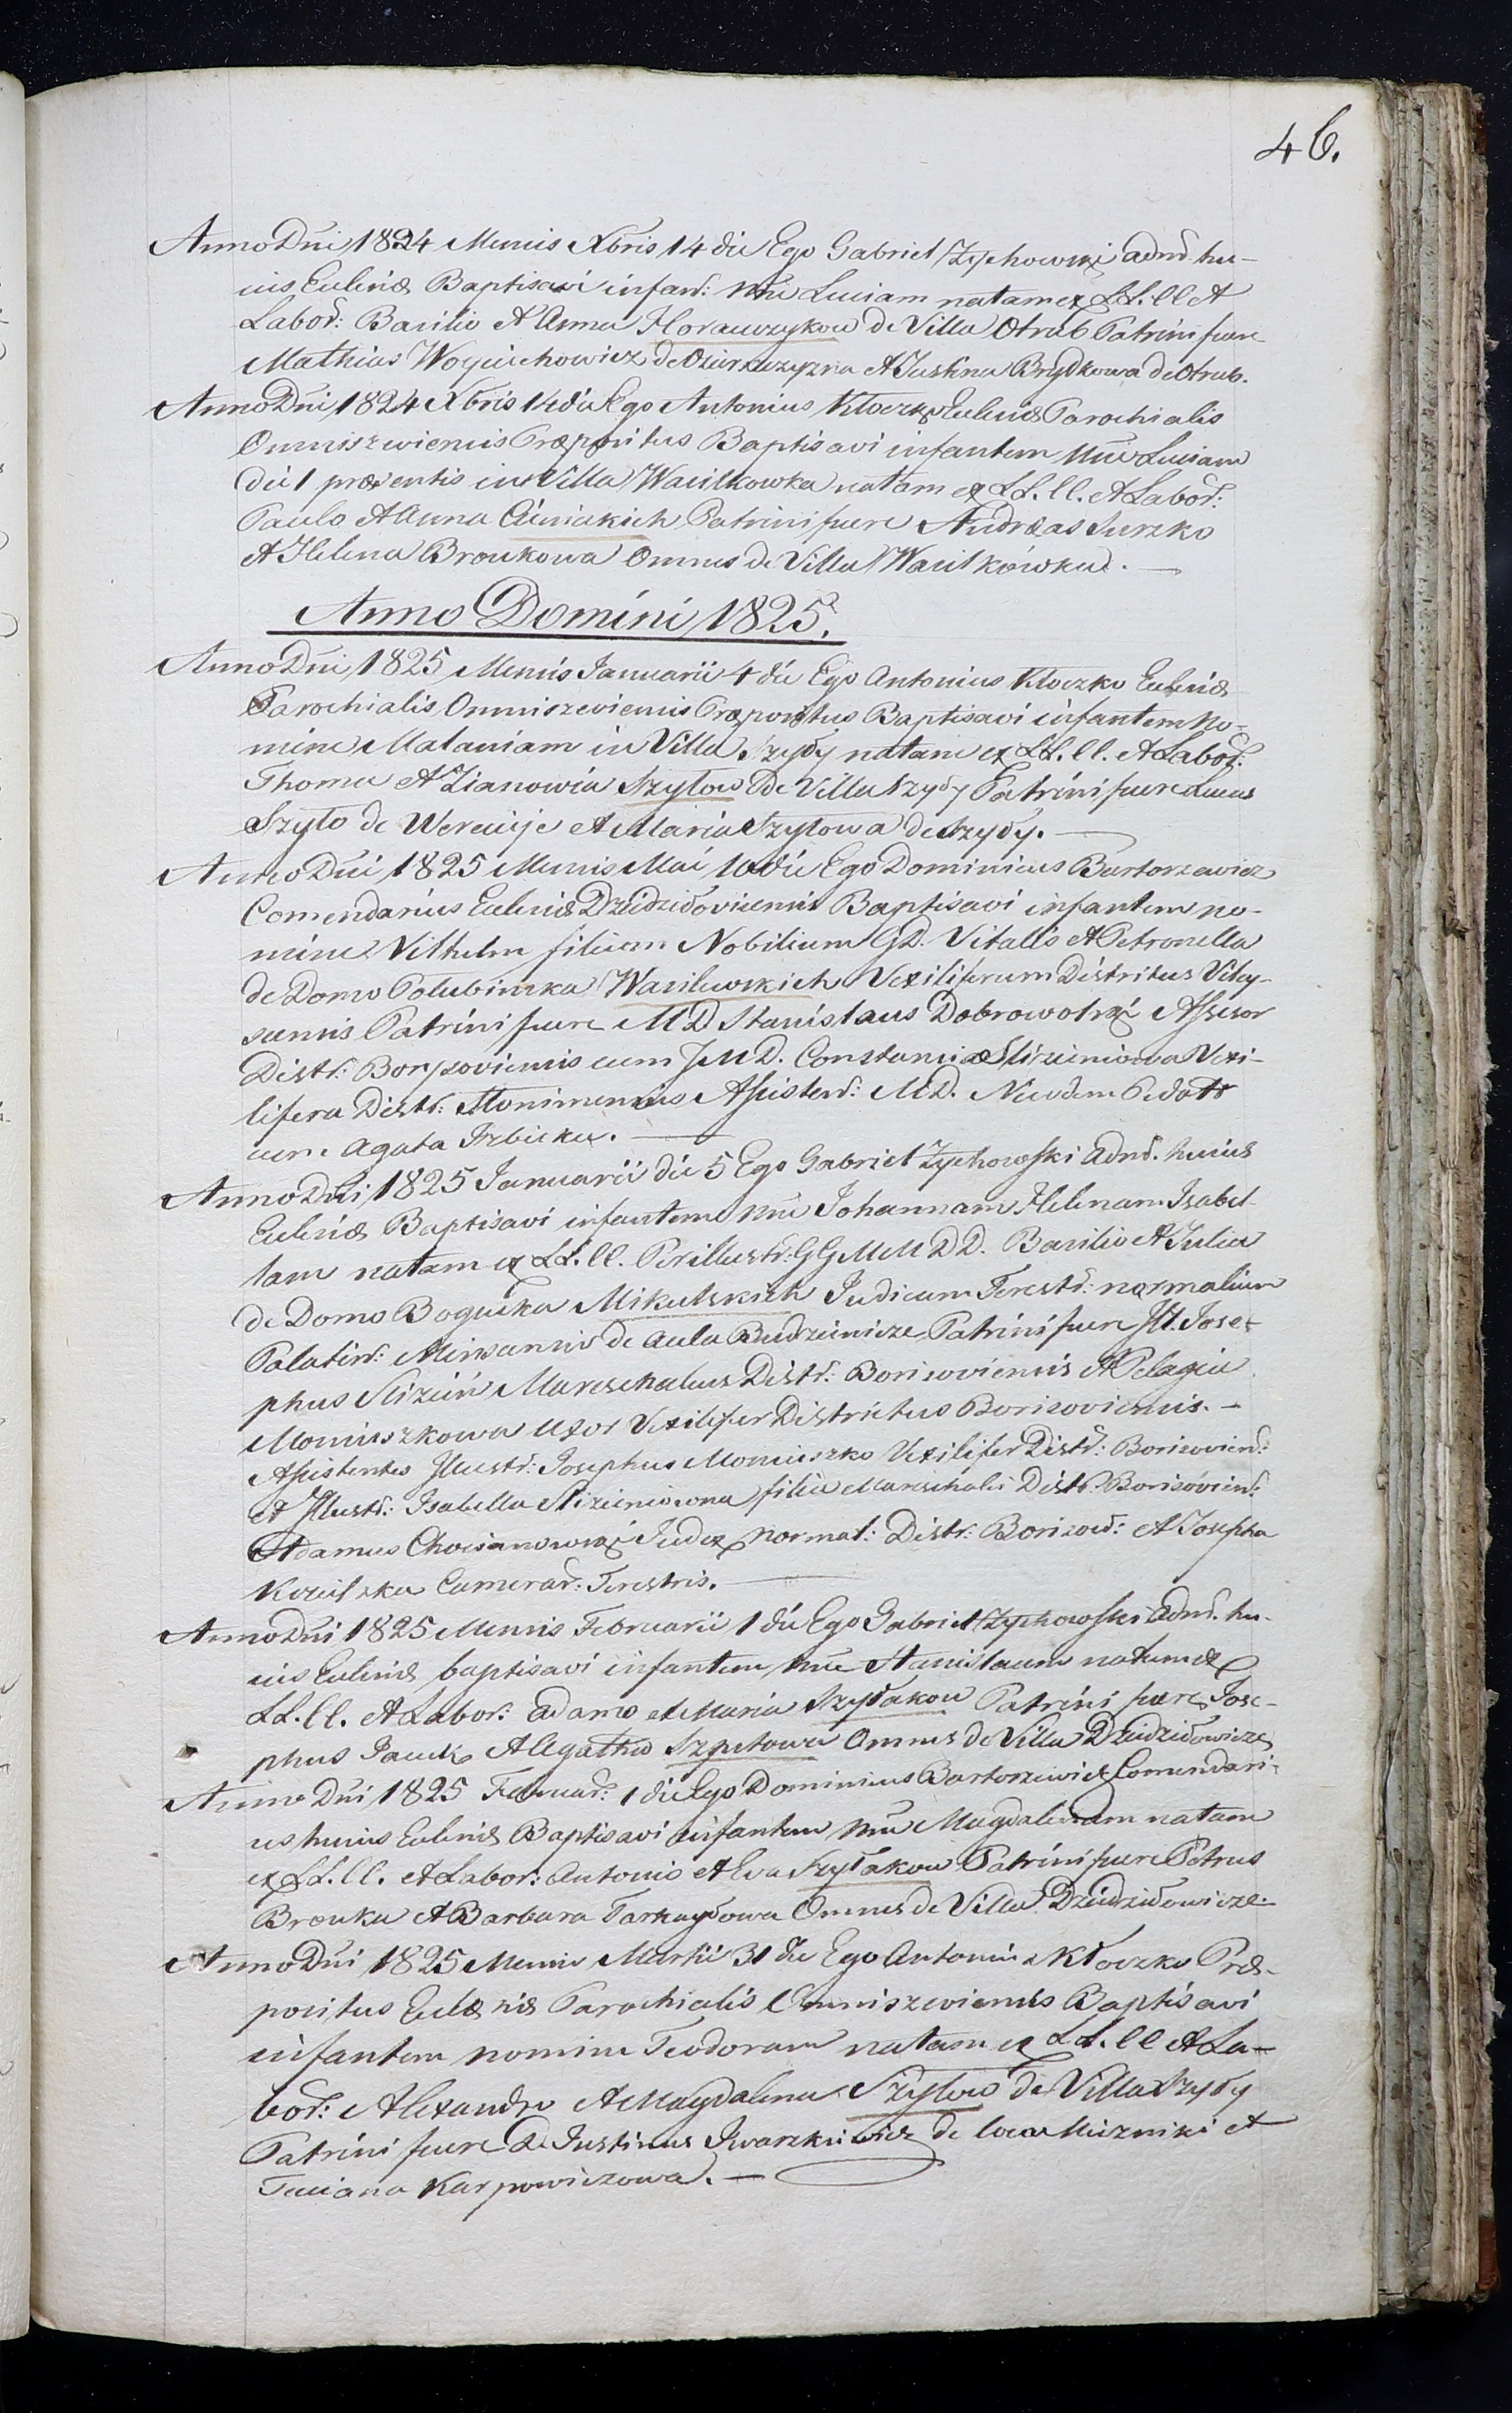 46.
Anno Dni 1824 Mensis Xbris 14 die Ego Gabriel Zychowski admd. hu-
ius Eclesiæ Baptisavi infant: nne Luciam natam ex LL. ll. et
Labor: Basilio et Anna Horawczykow de Villa Otrub Patrini fuere
Mathias Woyciechowicz de Oziarszczyzna et Justina Brydkowa de Otrub.
Anno Dni 1824 Xbris 14 die Ego Antonius Kłoczko Eclesiæ Parochialis
Omniszeviensis Præpositus Baptisavi infantem nne Luciam
die 1 præsentis in Villa Wasilkowka natam ex LL. ll. et Labor:
Paulo et Anna Cieniakich Patrini fuere Andreas Surzko
et Helena Bronkowa Omnes de Villa Wasilkówka. —
Anno Domini 1825.
Anno Dni 1825 Mensis Januarii 4 die Ego Antonius Kłoczko Eclesiæ
Parochialis Omniszeviensis Præpositus Baptisavi infantem no-
mine Malaniam in Villa Szyły natam ex LL. ll. et Labor:
Thoma et Zianowia Szyłow de Villa Szyły Patrini fuere Lucas
Szyło de Wereieje et Maria Szyłowa de Szyły. —
Anno Dni 1825 Mensis Mai 10 die Ego Dominicus Bartoszewicz
Comendarius Eclesiæ Dziedziłoviciensis Baptisavi infantem no-
mine Vilhelm filium Nobilium GD. Vitalis et Petronella
de Domo Połubinska Wasilewskich Vexiliferum Distritus Viley-
scensis Patrini fuere MD Stanislaus Dobrowolski Assesor
Distr: Borysoviensis cum JMD. Constancia Slizieniowa Vexi-
lifera Distr: Assistent: M.D. Nicodem
cum Agata Irzbicka. —
Anno Dni 1825 Januarii die 5 Ego Gabriel Zychowski admd. huius
Eclesiæ Baptisavi infantem nne Johannam Helenam Isabel-
lam natam ex LL. ll. Perillustr: GGMMDD. Basilio et Julia
de Domo Bogucka Mikulskich Judicum Terestr: normalium
Palatin: Minscensis de aula Budzienicze Patrini fuere Jll. Jose-
phus Slizień Mareschalcus Distr: Borisoviensis et Pelagia
Moniuszkowa Uxor Vexilifer Districtus Borisoviensis. —
Assistentes Jllustr: Josephus Moniuszko Vexilifer Distr: Borisovien:
et Jllustr: Isabella Slizieniowna filia Mareschalis Distr: Borisóvien:
Adamus Chocianowski Judex normal: Distr: Borizov: et Josepha
Kozielska Camerar: Terestris. —
Anno Dni 1825 Mensis Februarii 1 die Ego Gabriel Zychowski admd. hu-
ius Eclesiæ baptisavi infantem nne Stanislaum natum ex
LL. ll. et Labor: Adamo et Maria Szyłakow Patrini fuere Jose-
phus Jacuk et Agatha Szpetowa Omnes de Villa Dziedziłowicze
Anno Dni 1825 Februar: 1 die Ego Dominicus Bartoszewicz Comendari-
us huius Eclesiæ Baptisavi infantem nne Magdalenam natam
ex LL. ll. et Labor: Antonio et Eva Szyłakow Patrini fuere Petrus
Bronka et Barbara Omnes de Villa Dziedziłowicze.
Anno Dni 1825 Mensis Martii 31 die Ego Antonius Kłoczko Præ-
positus Eclesiæ Parochialis Omniszeviensis Baptisavi
infantem nomine Teodoram natam ex LL. ll et La-
bor: Alexandro et Magdalena Szyłow de Villa Szyły
Patrini fuere D. Justinus Iwaszkiewicz de loca Mizniki et
Taciana Karpowiczowa. —